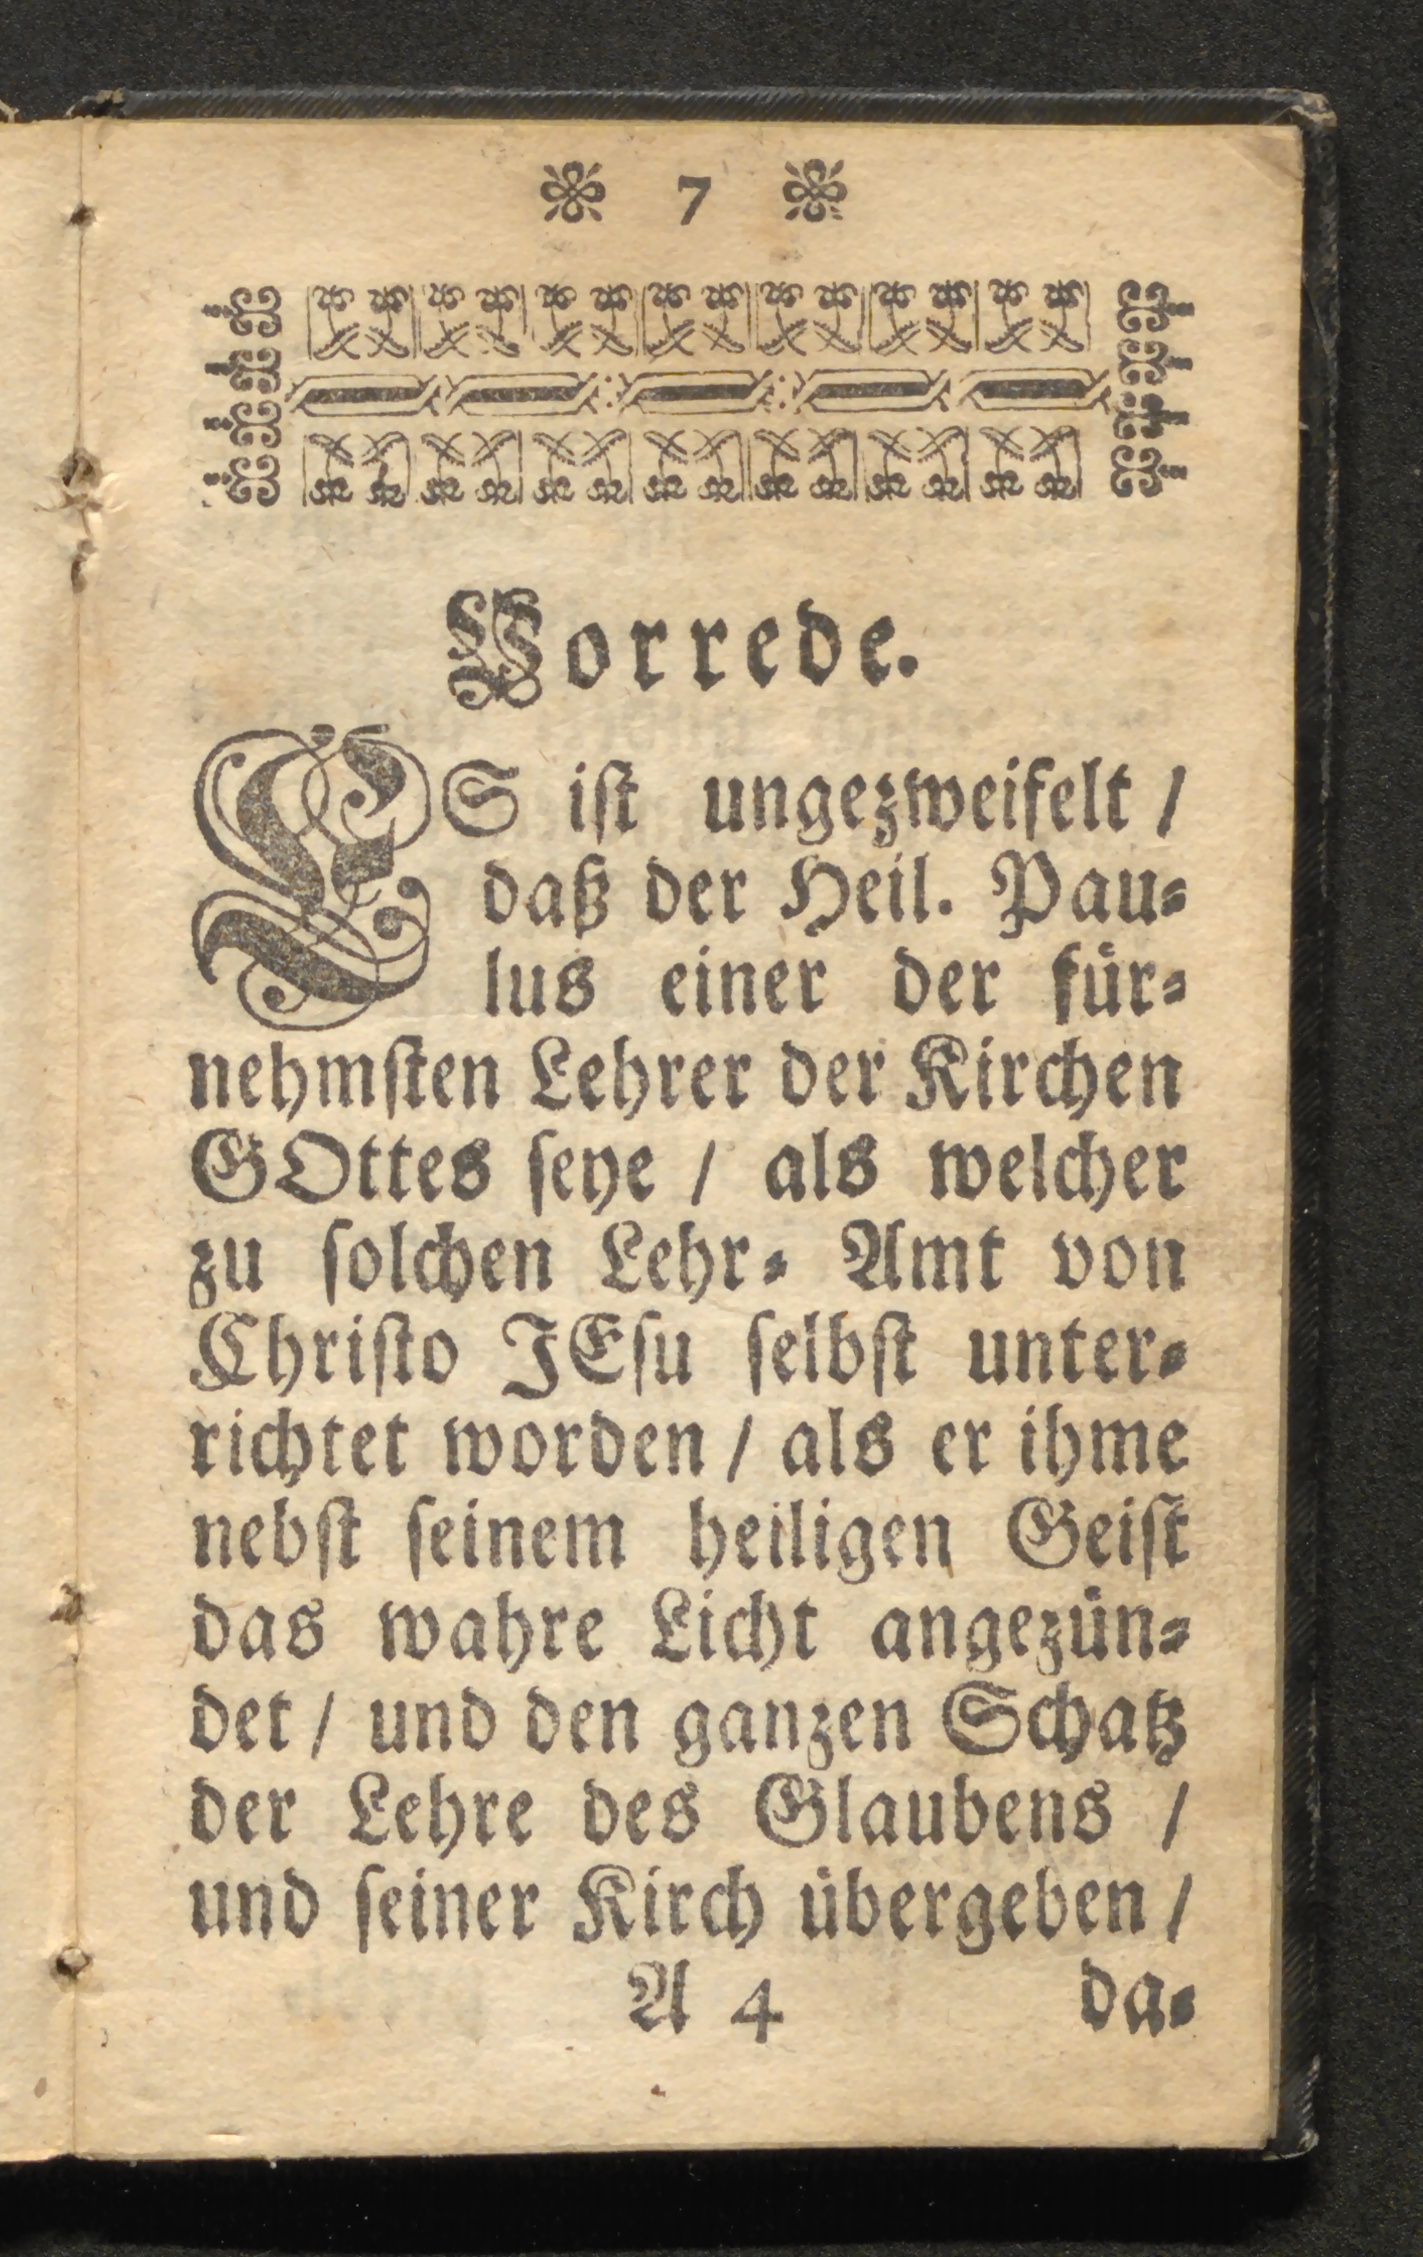 7
Vorrede.
ES iſt ungezweifelt /
daß der Heil. Pau⸗
lus einer der für⸗
nehmſten Lehrer der Kirchen
GOttes ſeye / als welcher
zu ſolchen Lehr⸗ Amt von
Chriſto JEſu ſelbſt unter⸗
richtet worden / als er ihme
nebſt ſeinem heiligen Geiſt
das wahre Licht angezün⸗
det / und den ganzen Schatz
der Lehre des Glaubens /
und ſeiner Kirch übergeben /
A 4 da⸗